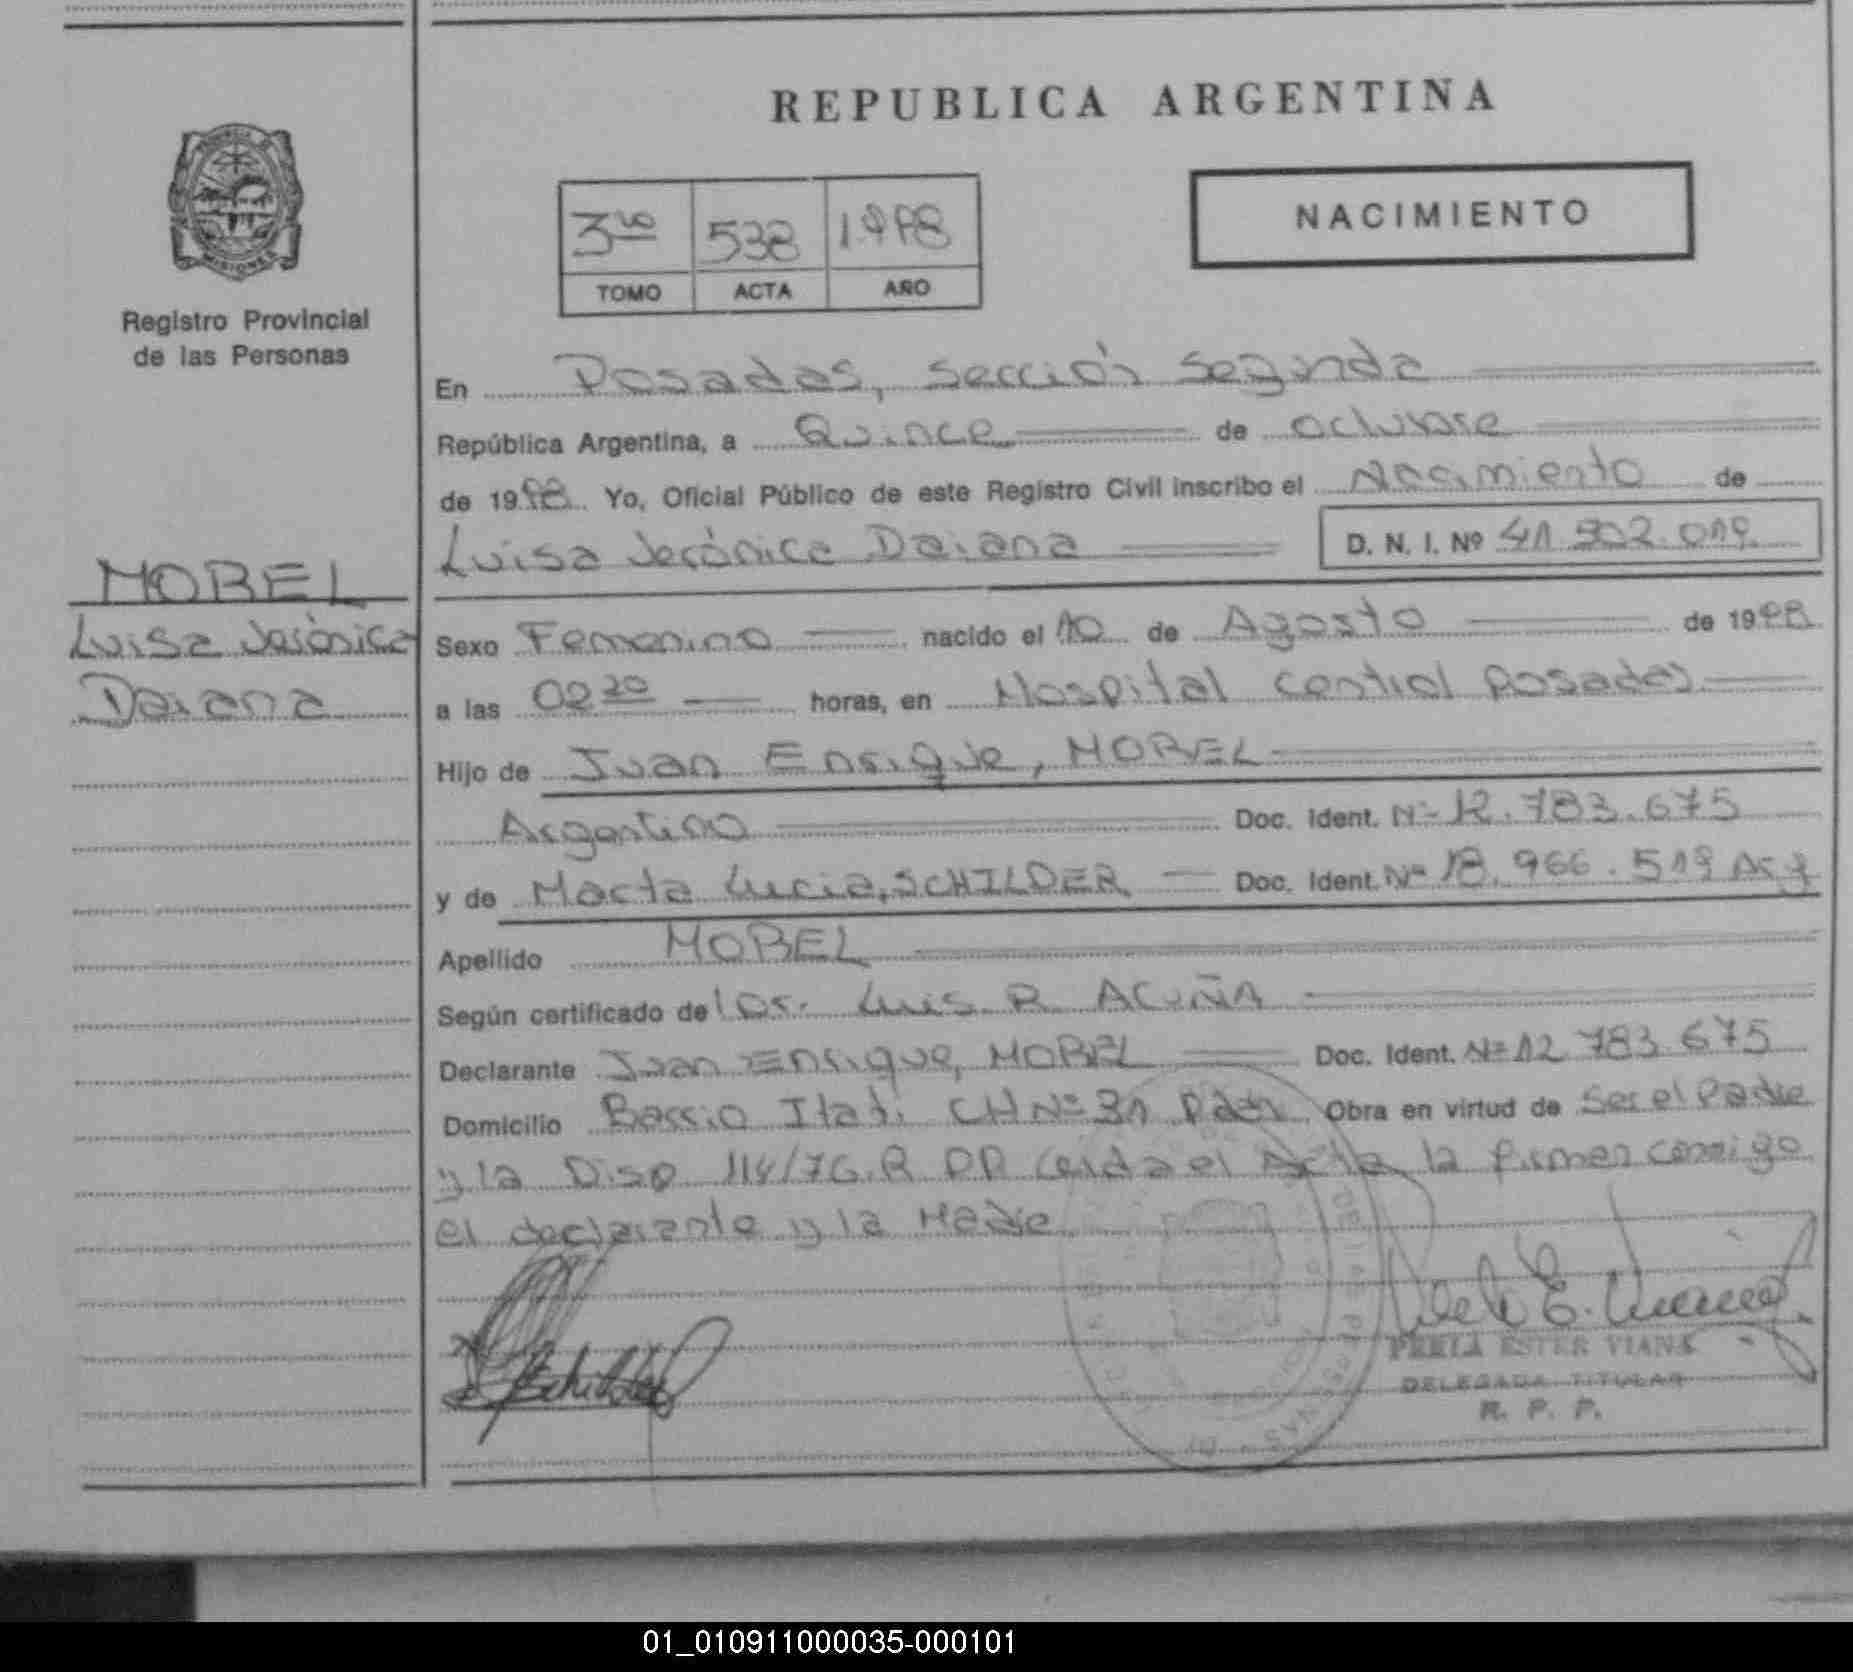 REPUBLICA ARGENTINA
MISIONES
Registro Provincial
de las Personas
3ro 538 1998
TOMO ACTA AÑO
NACIMIENTO
En Posadas, sección segunda
República Argentina, a Quince de octubre
de 1998 Yo, Oficial Público de este Registro Civil inscribo el Nacimiento de
Luisa Verónica Daiana D. N. I. Nº 41 902.019
MOREL
Luisa Verónica
Daiana
Sexo Femenino nacido el 10 de Agosto de 1998
a las 02 20 horas, en Hospital central posadas
Hijo de Juan Enrique, MOREL
Argentino Doc. Ident. Nº 12.783.675
y de Marta Lucia, SCHILDER Doc. Ident. Nº 18.966.519 Arg
Apellido MOREL
Según certificado del Dr. Luis R ACUÑA
Declarante Juan Enrique, MOREL Doc. Ident. Nº 12 783 675
Domicilio Barrio Itatí CH Nº 31 Obra en virtud de Ser el Padre
y la Disp 114/76.R.P.P Leida el Acta la firman conmigo
el declarante y la Madre
PERLA ESTER VIANA
DELEGADA TITULAR
R. P. P.
01_010911000035-000101